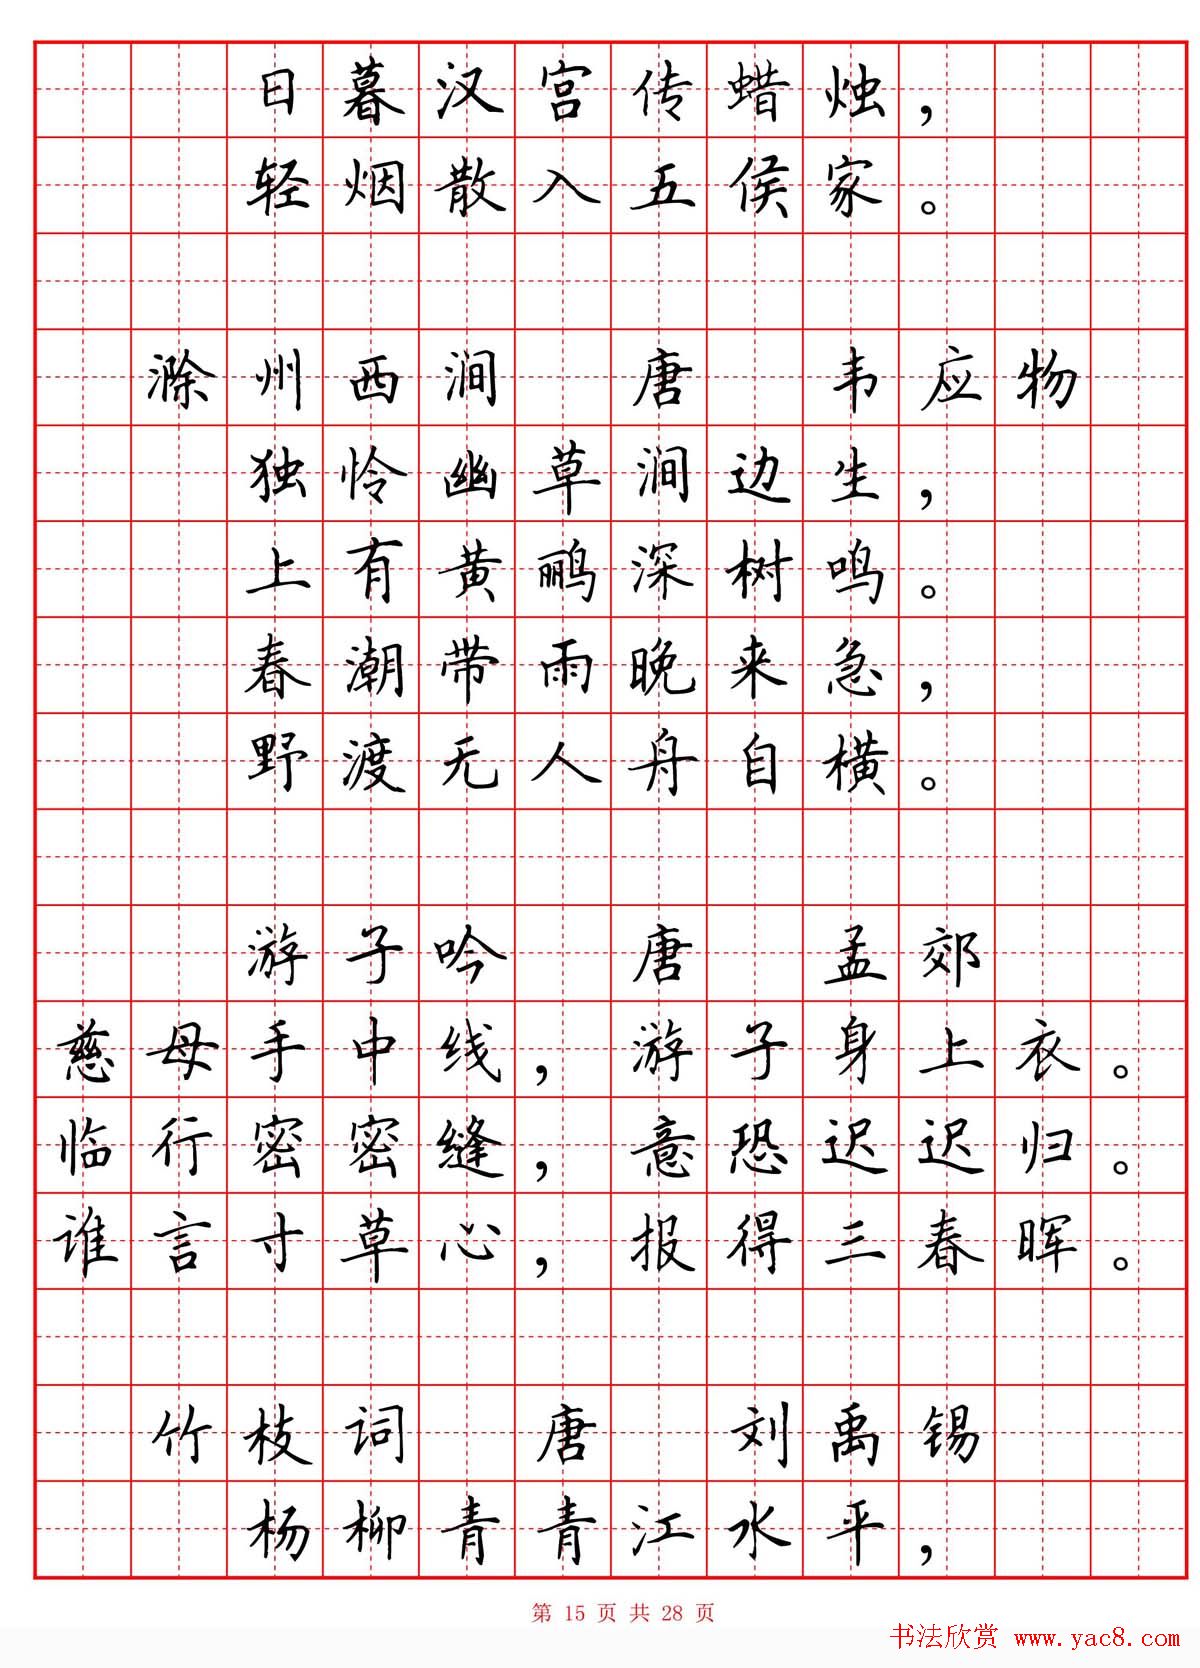 日暮汉宫传蜡烛，
轻烟散入五侯家。
滁州西涧 唐 韦应物
独怜幽草涧边生，
上有黄鹂深树鸣。
春潮带雨晚来急，
野渡无人舟自横。
游子吟 唐 孟郊
慈母手中线，游子身上衣。
临行密密缝，意恐迟迟归。
谁言寸草心，报得三春晖。
竹枝词 唐 刘禹锡
杨柳青青江水平，
第 15 页 共 28 页
书法欣赏 www.yac8.com